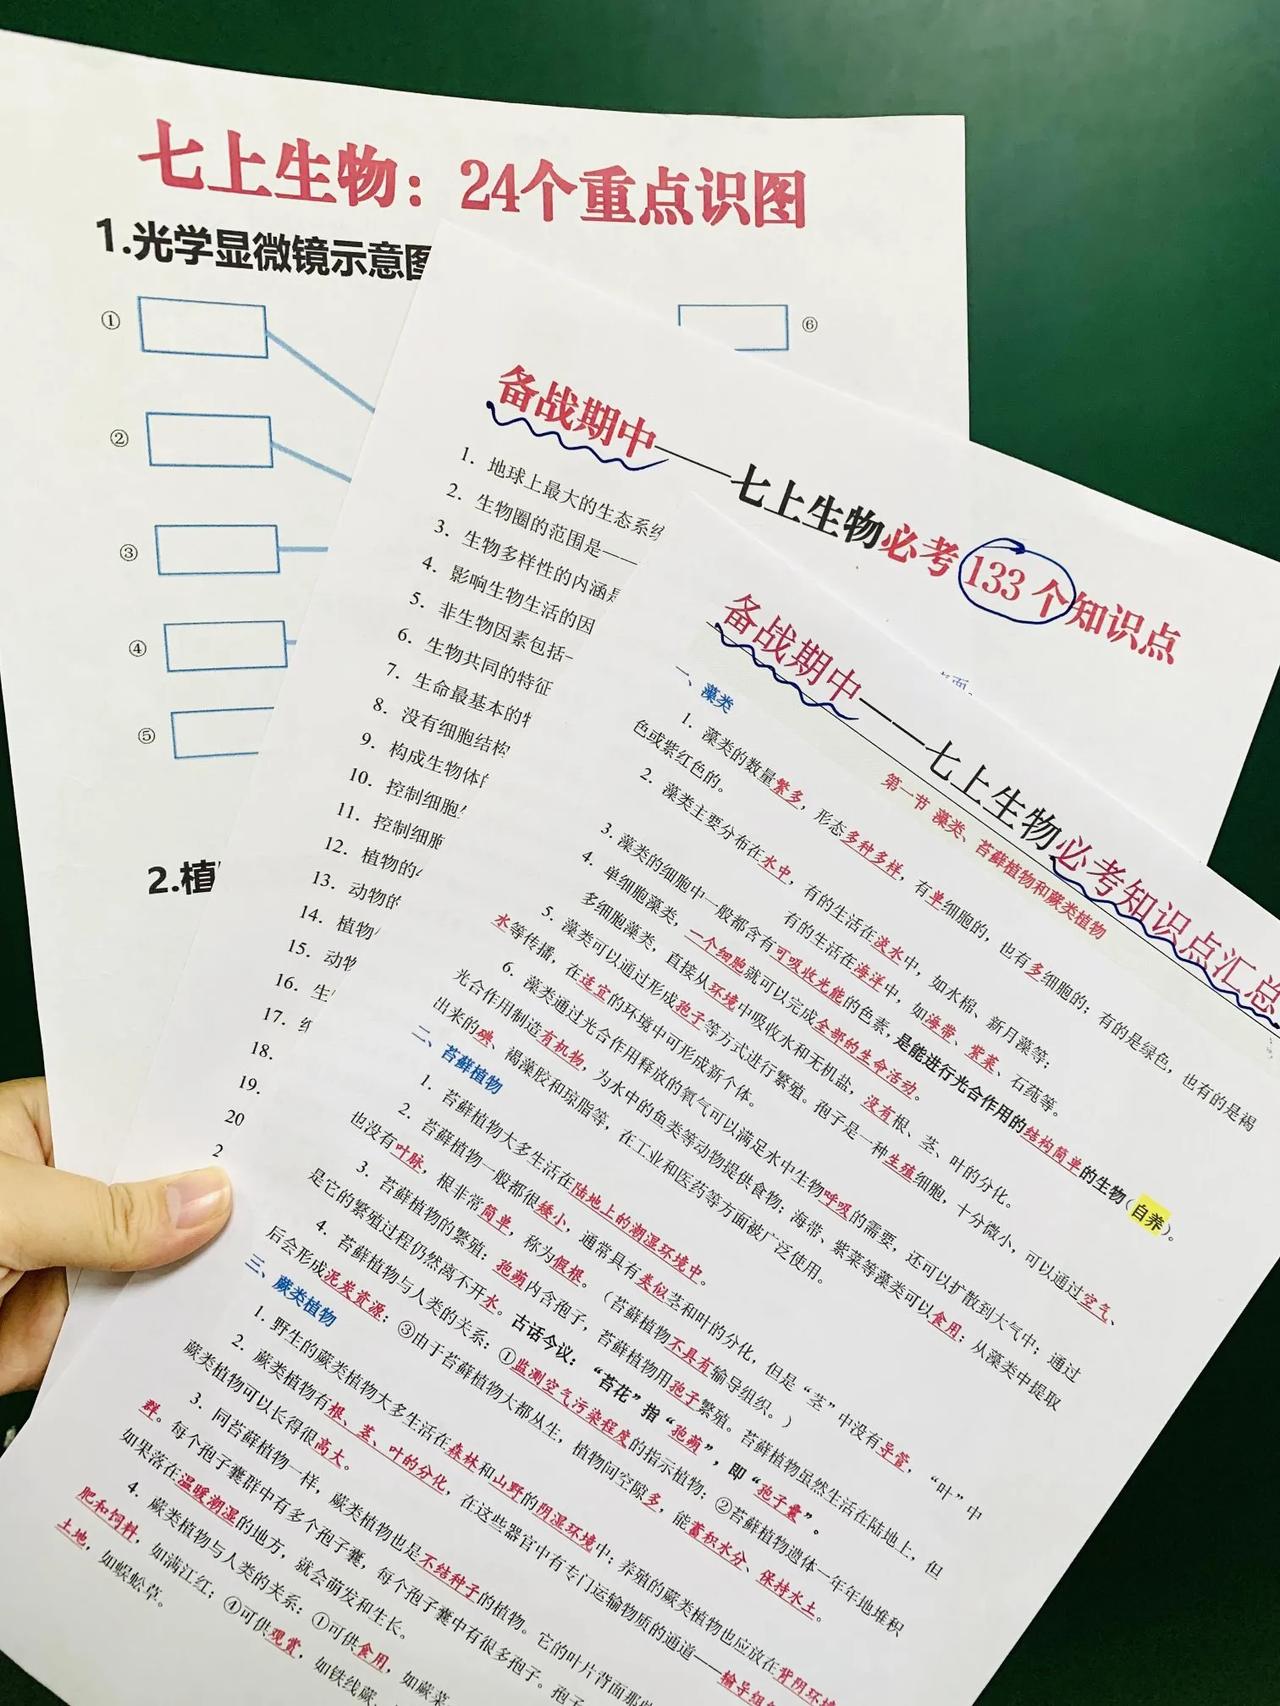 七上生物：24个重点识图
1.光学显微镜示意图
①
②
③
④
⑤
⑥
2.植
备战期中——七上生物必考133个知识点
1. 地球上最大的生态系统
2. 生物圈的范围是——
3. 生物多样性的内涵是
4. 影响生物生活的因
5. 非生物因素包括—
6. 生物共同的特征
7. 生命最基本的特
8. 没有细胞结构
9. 构成生物体的
10. 控制细胞
11. 控制细胞
12. 植物的
13. 动物的
14. 植物
15. 动物
16. 生
17.
18.
19.
20
2
备战期中——七上生物必考知识点汇总
第一节 藻类、苔藓植物和蕨类植物
一、藻类
1. 藻类的数量繁多，形态多种多样，有单细胞的，也有多细胞的；有的是绿色，也有的是褐
色或紫红色的。
2. 藻类主要分布在水中，有的生活在淡水中，如水棉、新月藻等；
有的生活在海洋中，如海带、紫菜、石莼等。
3. 藻类的细胞中一般都含有可吸收光能的色素，是能进行光合作用的结构简单的生物（自养）。
4. 单细胞藻类，一个细胞就可以完成全部的生命活动。
多细胞藻类，直接从环境中吸收水和无机盐，没有根、茎、叶的分化。
5. 藻类可以通过形成孢子等方式进行繁殖。孢子是一种生殖细胞，十分微小，可以通过空气、
水等传播，在适宜的环境中可形成新个体。
6. 藻类通过光合作用释放的氧气可以满足水中生物呼吸的需要，还可以扩散到大气中；通过
光合作用制造有机物，为水中的鱼类等动物提供食物；海带、紫菜等藻类可以食用；从藻类中提取
出来的碘、褐藻胶和琼脂等，在工业和医药等方面被广泛使用。
二、苔藓植物
1. 苔藓植物大多生活在陆地上的潮湿环境中。
2. 苔藓植物一般都很矮小，通常具有类似茎和叶的分化，但是“茎”中没有导管，“叶”中
也没有叶脉，根非常简单，称为假根。（苔藓植物不具有输导组织。）
3. 苔藓植物的繁殖：孢蒴内含孢子，苔藓植物用孢子繁殖。苔藓植物虽然生活在陆地上，但
是它的繁殖过程仍然离不开水。古话今议：“苔花”指“孢蒴”，即“孢子囊”。
4. 苔藓植物与人类的关系：①监测空气污染程度的指示植物；②苔藓植物遗体一年年地堆积
后会形成泥炭资源；③由于苔藓植物大都丛生，植物间空隙多，能蓄积水分、保持水土。
三、蕨类植物
1. 野生的蕨类植物大多生活在森林和山野的阴湿环境中；养殖的蕨类植物也应放在背阴环境
2. 蕨类植物有根、茎、叶的分化，在这些器官中有专门运输物质的通道——输导组织
蕨类植物可以长得很高大。
3. 同苔藓植物一样，蕨类植物也是不结种子的植物。它的叶片背面那些
群。每个孢子囊群中有多个孢子囊，每个孢子囊中有很多孢子。孢子
如果落在温暖潮湿的地方，就会萌发和生长。
4. 蕨类植物与人类的关系：①可供食用，如蕨菜
肥和饲料，如满江红；④可供观赏，如铁线蕨、
土地，如蜈蚣草。